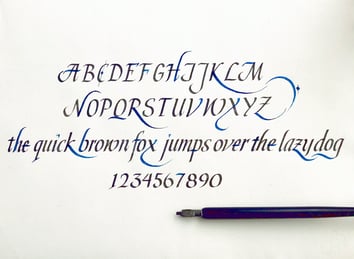 ABCDEFGHIJKLM
NOPQRSTUVWXYZ
the quick brown fox jumps over the lazy dog
1234567890